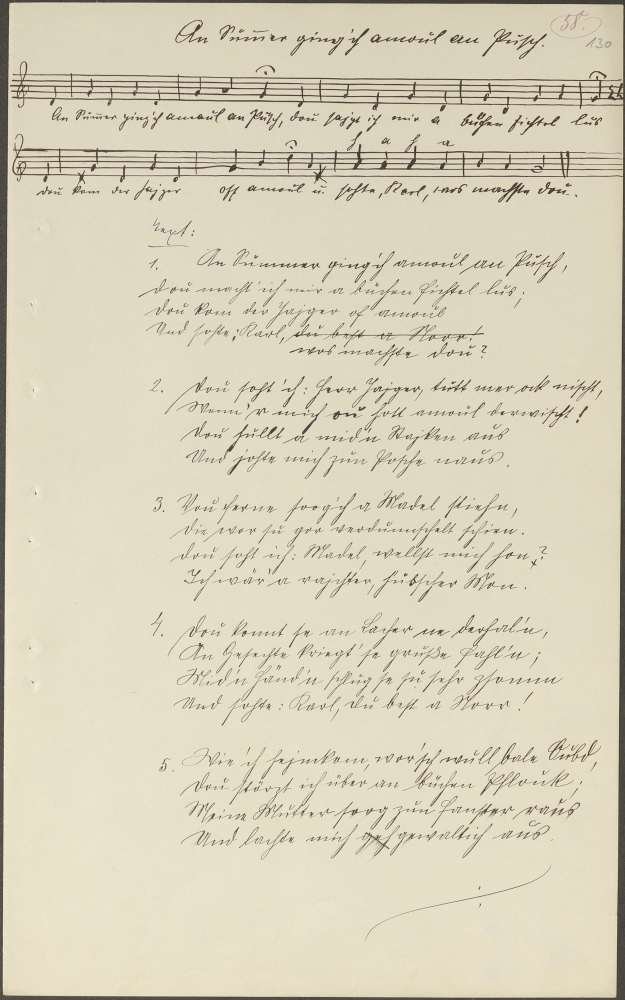 58.
130
An Summer ging'ch amoul an Pusch.
An Summer ging'ch amoul an Pusch, dou sajgt ich mir a buchen Fichtel lus
h a h a
dou kom der Hajger off amoul u. sohte, Karl, wos machste dou.
Text:
1. An Summer ging'ch amoul an Pusch,
Dou macht' ich mir a buchen Fichtel lus;
Dou kom der Hajger of amoul
Und sohte: Karl, du best a Norr!
wos machste dou?
2. Dou soht' ich: Herr Hajger, tutt mer ock nischt,
Wenn'r mich ou hott amoul derwischt!
Dou hullt a mid'n Stajken aus
Und johte mich zun Posche naus.
3. Vou ferne soog'ch a Madel stiehn,
Die wor su gor verdunnschelt schien.
Dou soht ich: Madel, wellst mich hon?
Ich wär' a rajchter, hübscher Mon.
4. Dou konnt se an Lacher ne derhal'n,
An Gesechte kriegt' se gruße Fahl'n;
Mid'n Händ'n schlug se su sehr zsomm
Und sohte: Karl, du best a Norr!
5. Wie'ch hejmkom, wor'sch wull bale Oubd,
Dou störzt ich über an büchen Pflouk;
Meine Mutter soog zun Fanster raus
Und lachte mich gewaltich aus.